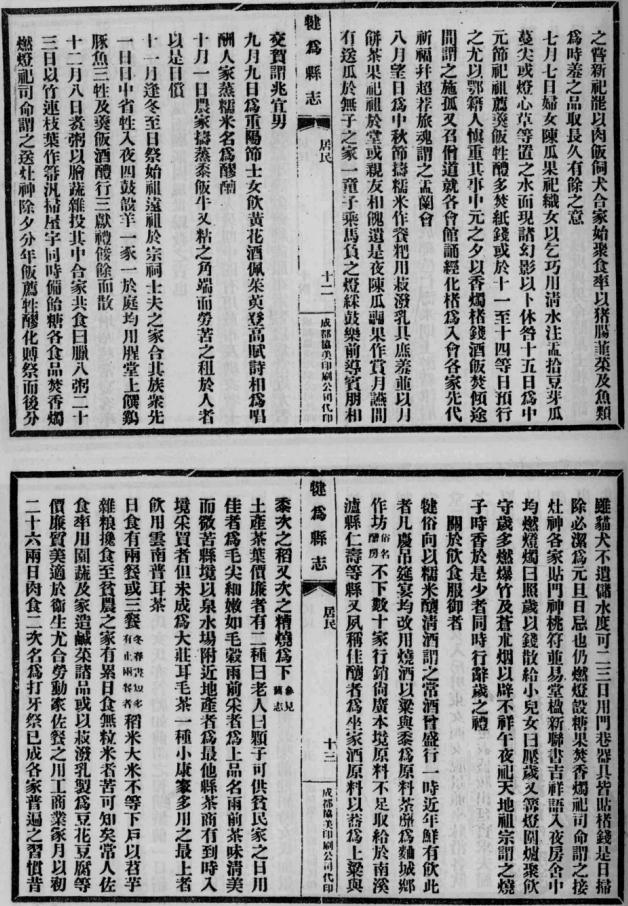 之嘗新祀罷以肉飯飼犬合家始聚食率以猪腸韮菜及魚類
為時羞之品取長久有餘之意
七月七日婦女陳瓜果祀織女以乞巧用清水注盂拾豆芽瓜
蔓尖或燈心草等置之水面現諸幻影以卜休咎十五日為中
元節祀祖薦羹飯牲醴多焚紙錢或於十一至十四等日預行
之尤以鄂籍人慎重其事中元之夕以香燭楮錢酒飯焚傾途
間謂之施孤又召僧道就各會館誦經化楮為入會各家先代
祈福幷超荐旅魂謂之盂蘭會
八月望日為中秋節擣糯米作餈粑用菽潑乳具庶羞並以月
餅茶果祀祖於堂或親友相餽遺是夜陳瓜讌果作賞月讌間
有送瓜於無子之家一童子乘馬負之燈綵鼓樂前導賓朋相
犍為縣志
居民
十二
成都協美印刷公司代印
交賀謂兆宜男
九月九日為重陽節士女飲黃花酒佩茱萸登高賦詩相為唱
酬人家蒸糯米名為醪糟
十月一日農家擣蒸黍飯牛又粘之角端而勞苦之租於人者
以是日償
十一月逢冬至日祭始祖遠祖於宗祠士夫之家合其族衆先
一日日中省牲入夜四鼓設羊一豕一於庭均用腥堂上饌鷄
豚魚三牲及羹飯酒醴行三獻禮餕餘而散
十二月八日煑粥以膾蔬雜投其中合家共食曰臘八粥二十
三日以竹連枝葉作箒汎掃屋宇同時備飴糖各食品焚香燭
燃燈祀司命謂之送灶神除夕分年飯薦牲醪化賻祭而後分
雖貓犬不遺儲水度可二三日用門巷器具皆貼楮錢是日掃
除必潔為元旦日忌也仍燃燈設糖果焚香燭祀司命謂之接
灶神各家貼門神桃符並易堂楹新聯書吉祥語入夜房舍中
均燃燈燭曰照歲以錢散給小兒女曰壓歲又篝燈圍爐聚飲
守歲多燃爆竹及蒼朮烟以辟不祥午夜祀天地祖宗謂之燒
子時香於是少者同時行辭歲之禮
關於飲食服御者
犍俗向以糯米釀清酒謂之常酒曾盛行一時近年鮮有飲此
者凡慶吊筵宴均改用燒酒以粱與黍為原料茶蘑為麯城鄉
作坊俗名酒房不下數十家行銷尚廣本境原料不足取給於南溪
瀘縣仁壽等縣又夙稱佳釀者為坐家酒原料以薥為上粱與
犍為縣志
居民
十三
成都協美印刷公司代印
黍次之稻又次之糟燒為下參見舊志
土產茶葉價廉者有二種曰老人曰顆子可供貧民家之日用
佳者為毛尖細嫩如毛穀雨前采者為上品名雨前茶味清美
而微苦縣境以泉水場附近地產者為最他縣茶商有到時入
境采買者但未成為大莊耳毛茶一種小康家多用之最上者
飲用雲南普耳茶
日食有兩餐或三餐冬春晝短多有止兩餐者稻米大米不等下戶以苕芋
雜粮攙食至貧農之家有累日食無粒米者苦可知矣常人佐
食率用園蔬及家造鹹菜諸品或以菽潑乳製為豆花豆腐等
價廉質美適於衞生尤合勞動家佐餐之用工商業家月以初
二十六兩日肉食二次名為打牙祭已成各家普遍之習慣昔